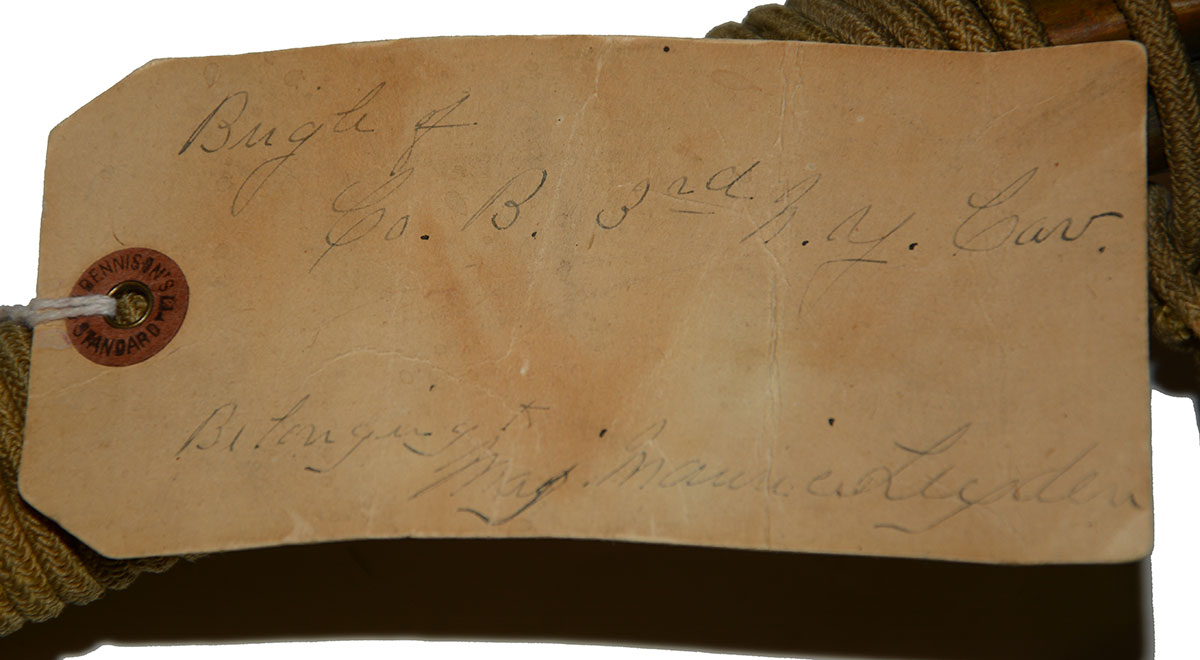 Bugle of
Co. B. 3rd N. Y. Cav.
DENNISON'S
STANDARD
Belonging to
Maj. Maurice Leyden